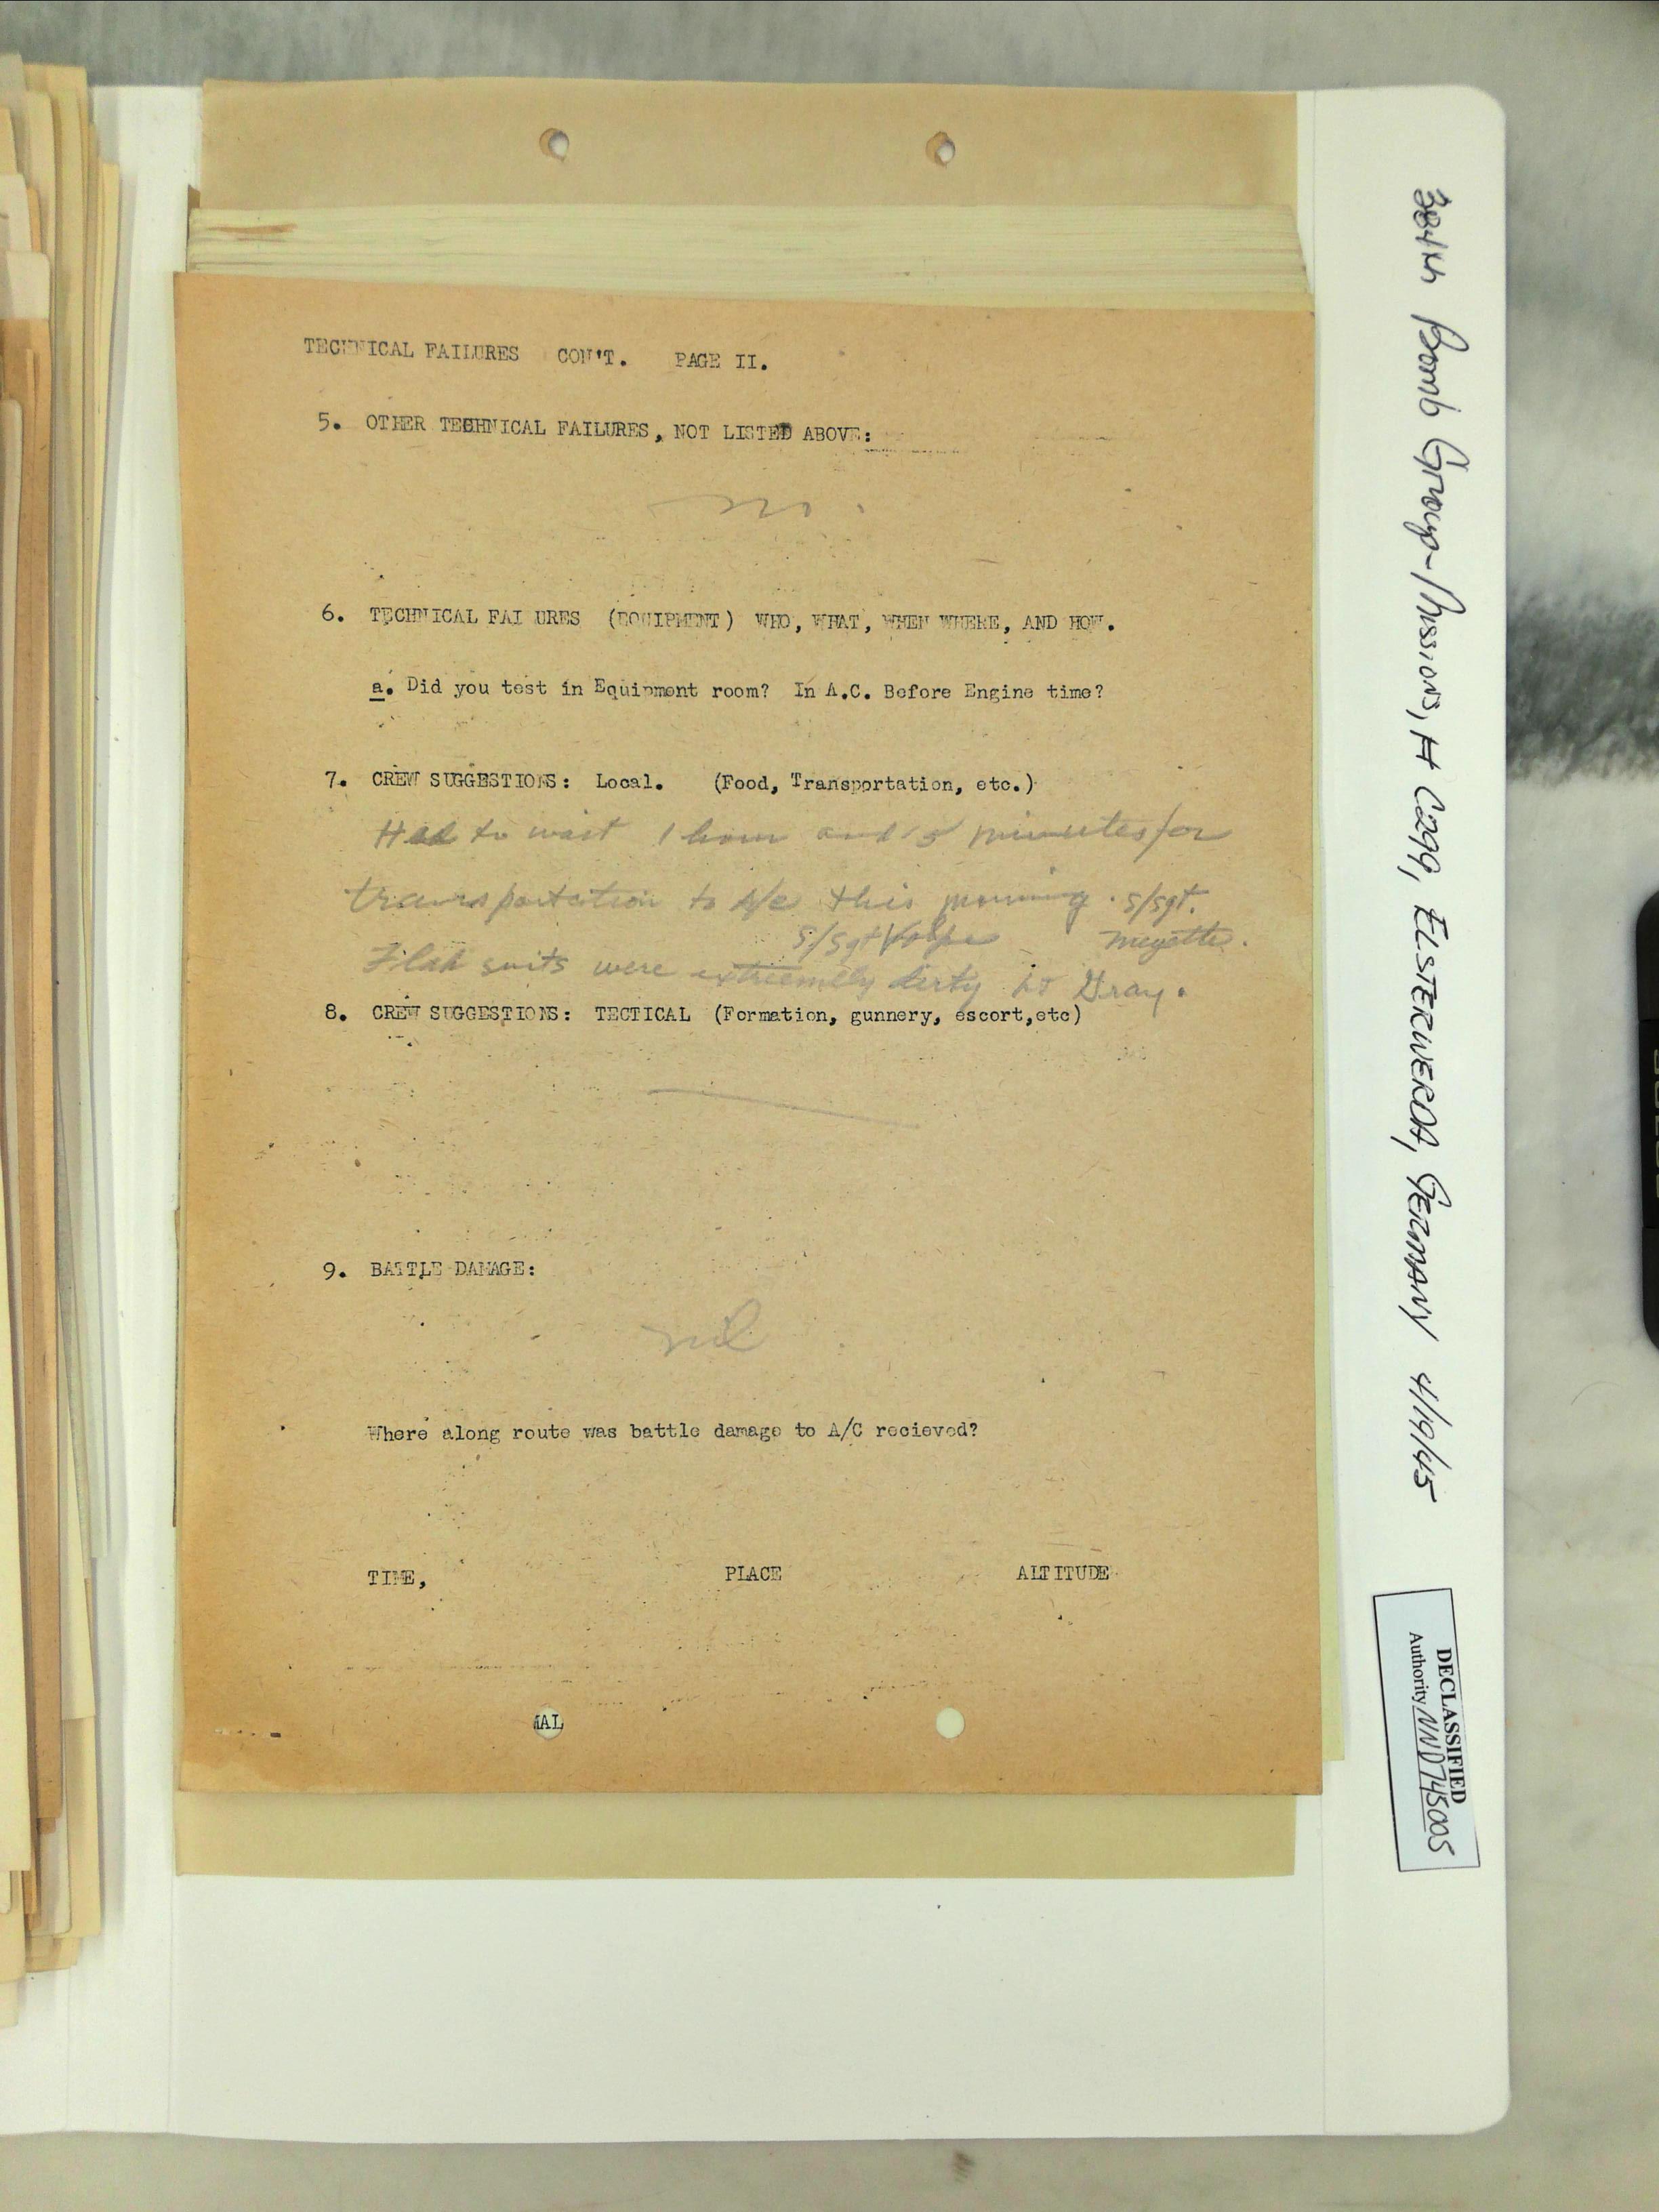 TECHNICAL FAILURES CON'T. PAGE II.
5. OTHER TECHNICAL FAILURES, NOT LISTED ABOVE:
no.
6. TECHNICAL FAI URES (EQUIPMENT) WHO, WHAT, WHEN WHERE, AND HOW.
a. Did you test in Equipment room? In A.C. Before Engine time?
7. CREW SUGGESTIONS: Local. (Food, Transportation, etc.)
Had to wait 1 hour and 5 minutes for
transportation to A/C this morning. S/Sgt.
S/Sgt Volpe
Flak suits were extreemely dirty Lt Gray.
8. CREW SUGGESTIONS: TECTICAL (Formation, gunnery, escort,etc)
9. BATTLE DAMAGE:
nil
Where along route was battle damage to A/C recieved?
TIME, PLACE ALTITUDE
MAL
384th Bomb Group-Missions, # C299, ELSTERWERDA, GERMANY 4/19/45
DECLASSIFIED
Authority NND745005